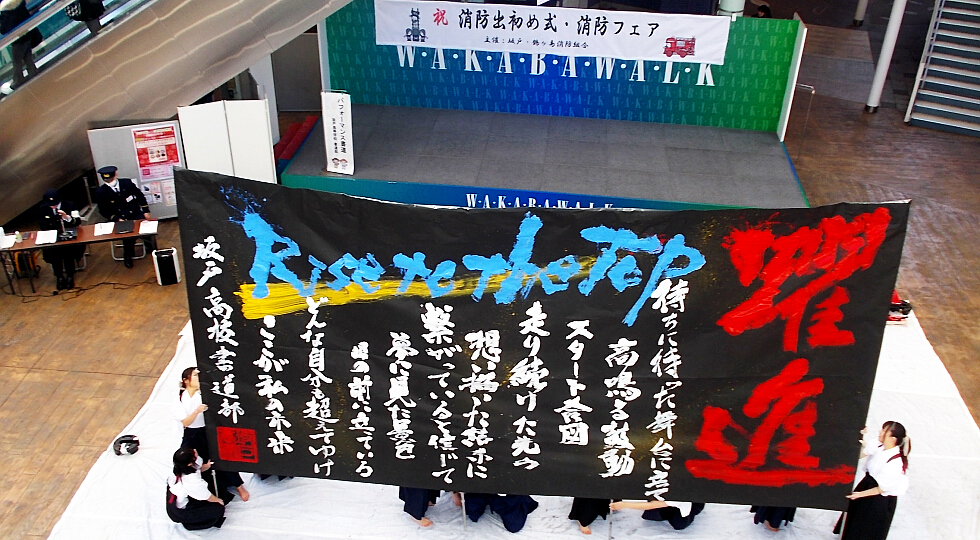 祝 消防出初め式・消防フェア
主催：坂戸・鶴ヶ島消防組合
W・A・K・A・B・A・W・A・L・K
パフォーマンス書道
W・A・K・A・B・A・W・A・L・K
躍進
Rise to the Top
待ちに待った舞台に立て
高鳴る鼓動
スタート合図
走り続けた先の
想い描いた結末に
繋がっていると信じて
夢に見た景色
目の前に立っている
どんな自分も超えてゆけ
ここが私の未来
坂戸高校書道部